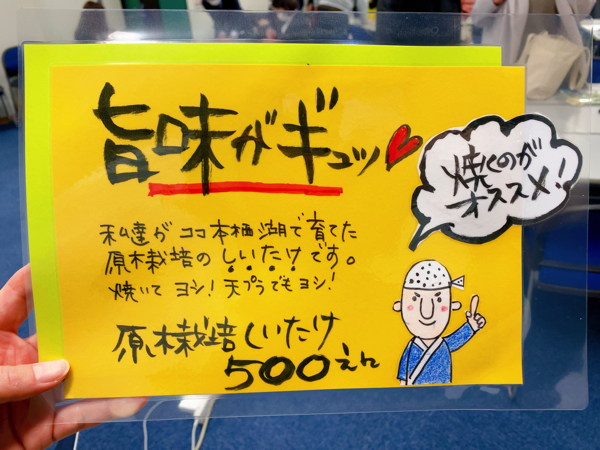 旨味がギュッ
焼くのが
オススメ!
私達が ココ本栖湖で育てた
原木栽培の しいたけです。
焼いて ヨシ! 天プラでもヨシ!
原木栽培しいたけ
500えん